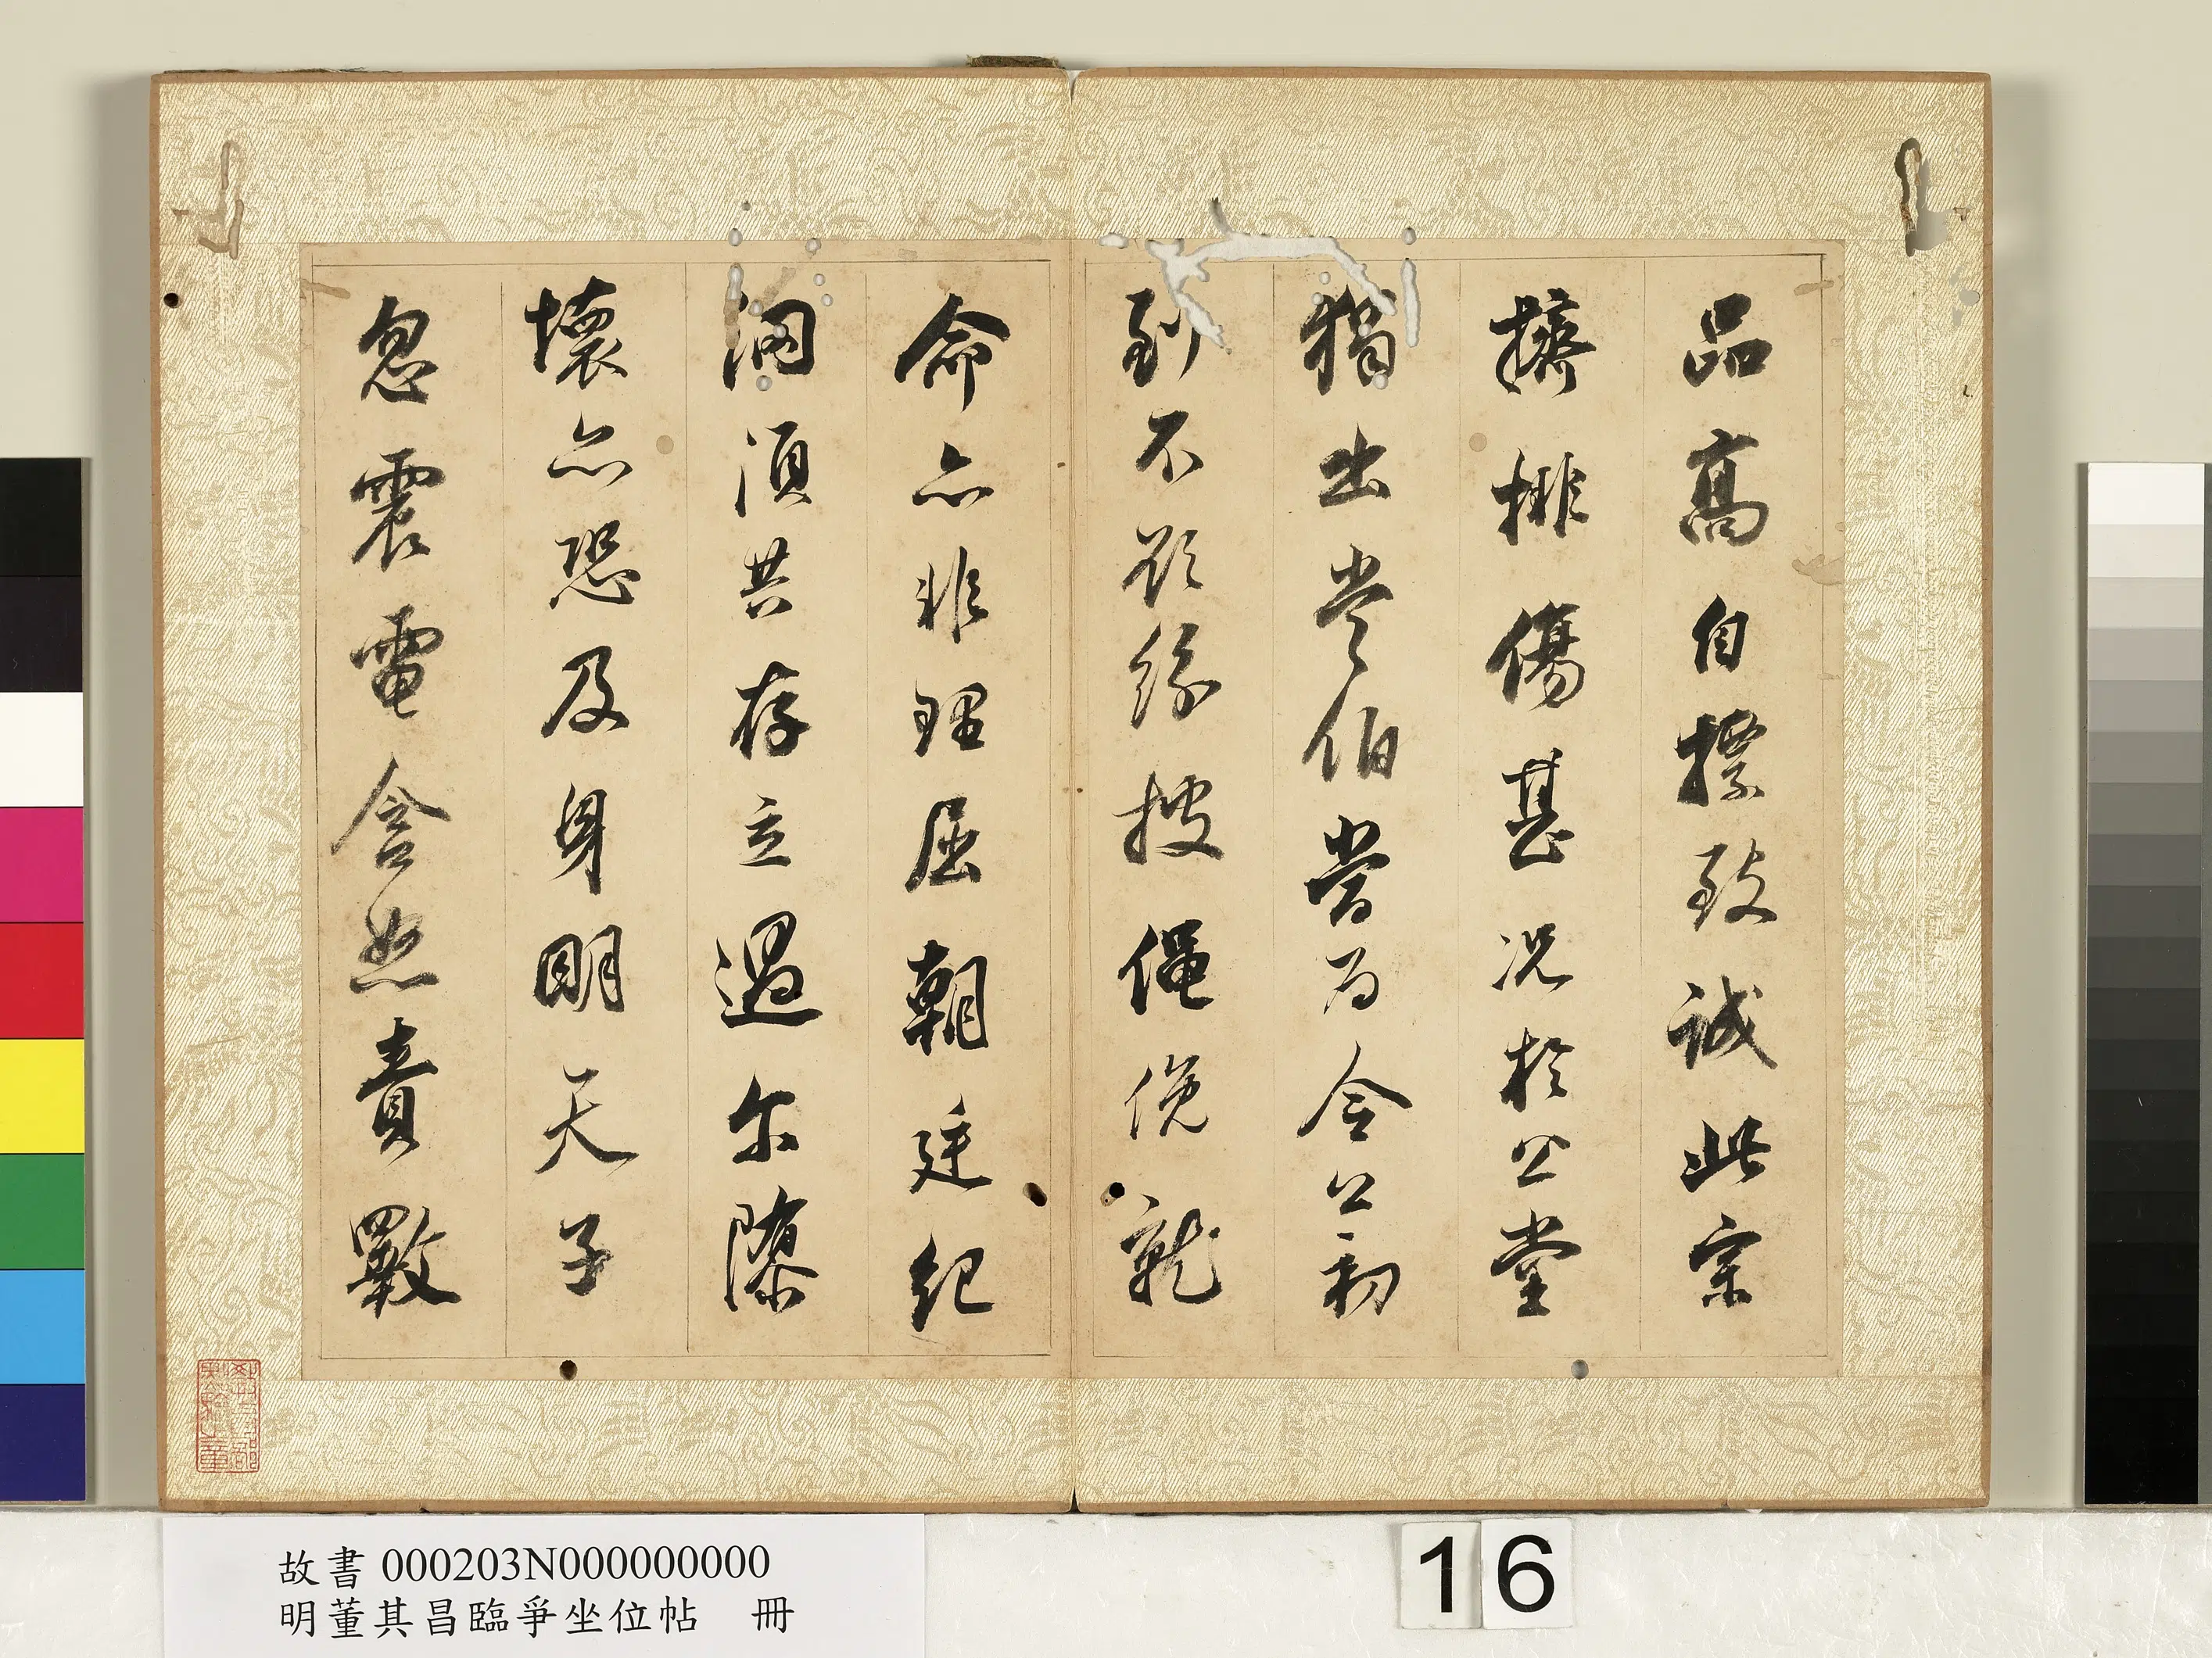 品高自標致誠此宗
擠排傷甚况於公堂
猲出常伯當為令公初
到不欲紛披僶俛就
命亦非理屈朝廷紀
綱須共存立過尔隳
壞亦恐及身明天子
忽震電含怒責斁
故書 000203N000000000
明董其昌臨爭坐位帖 冊
16